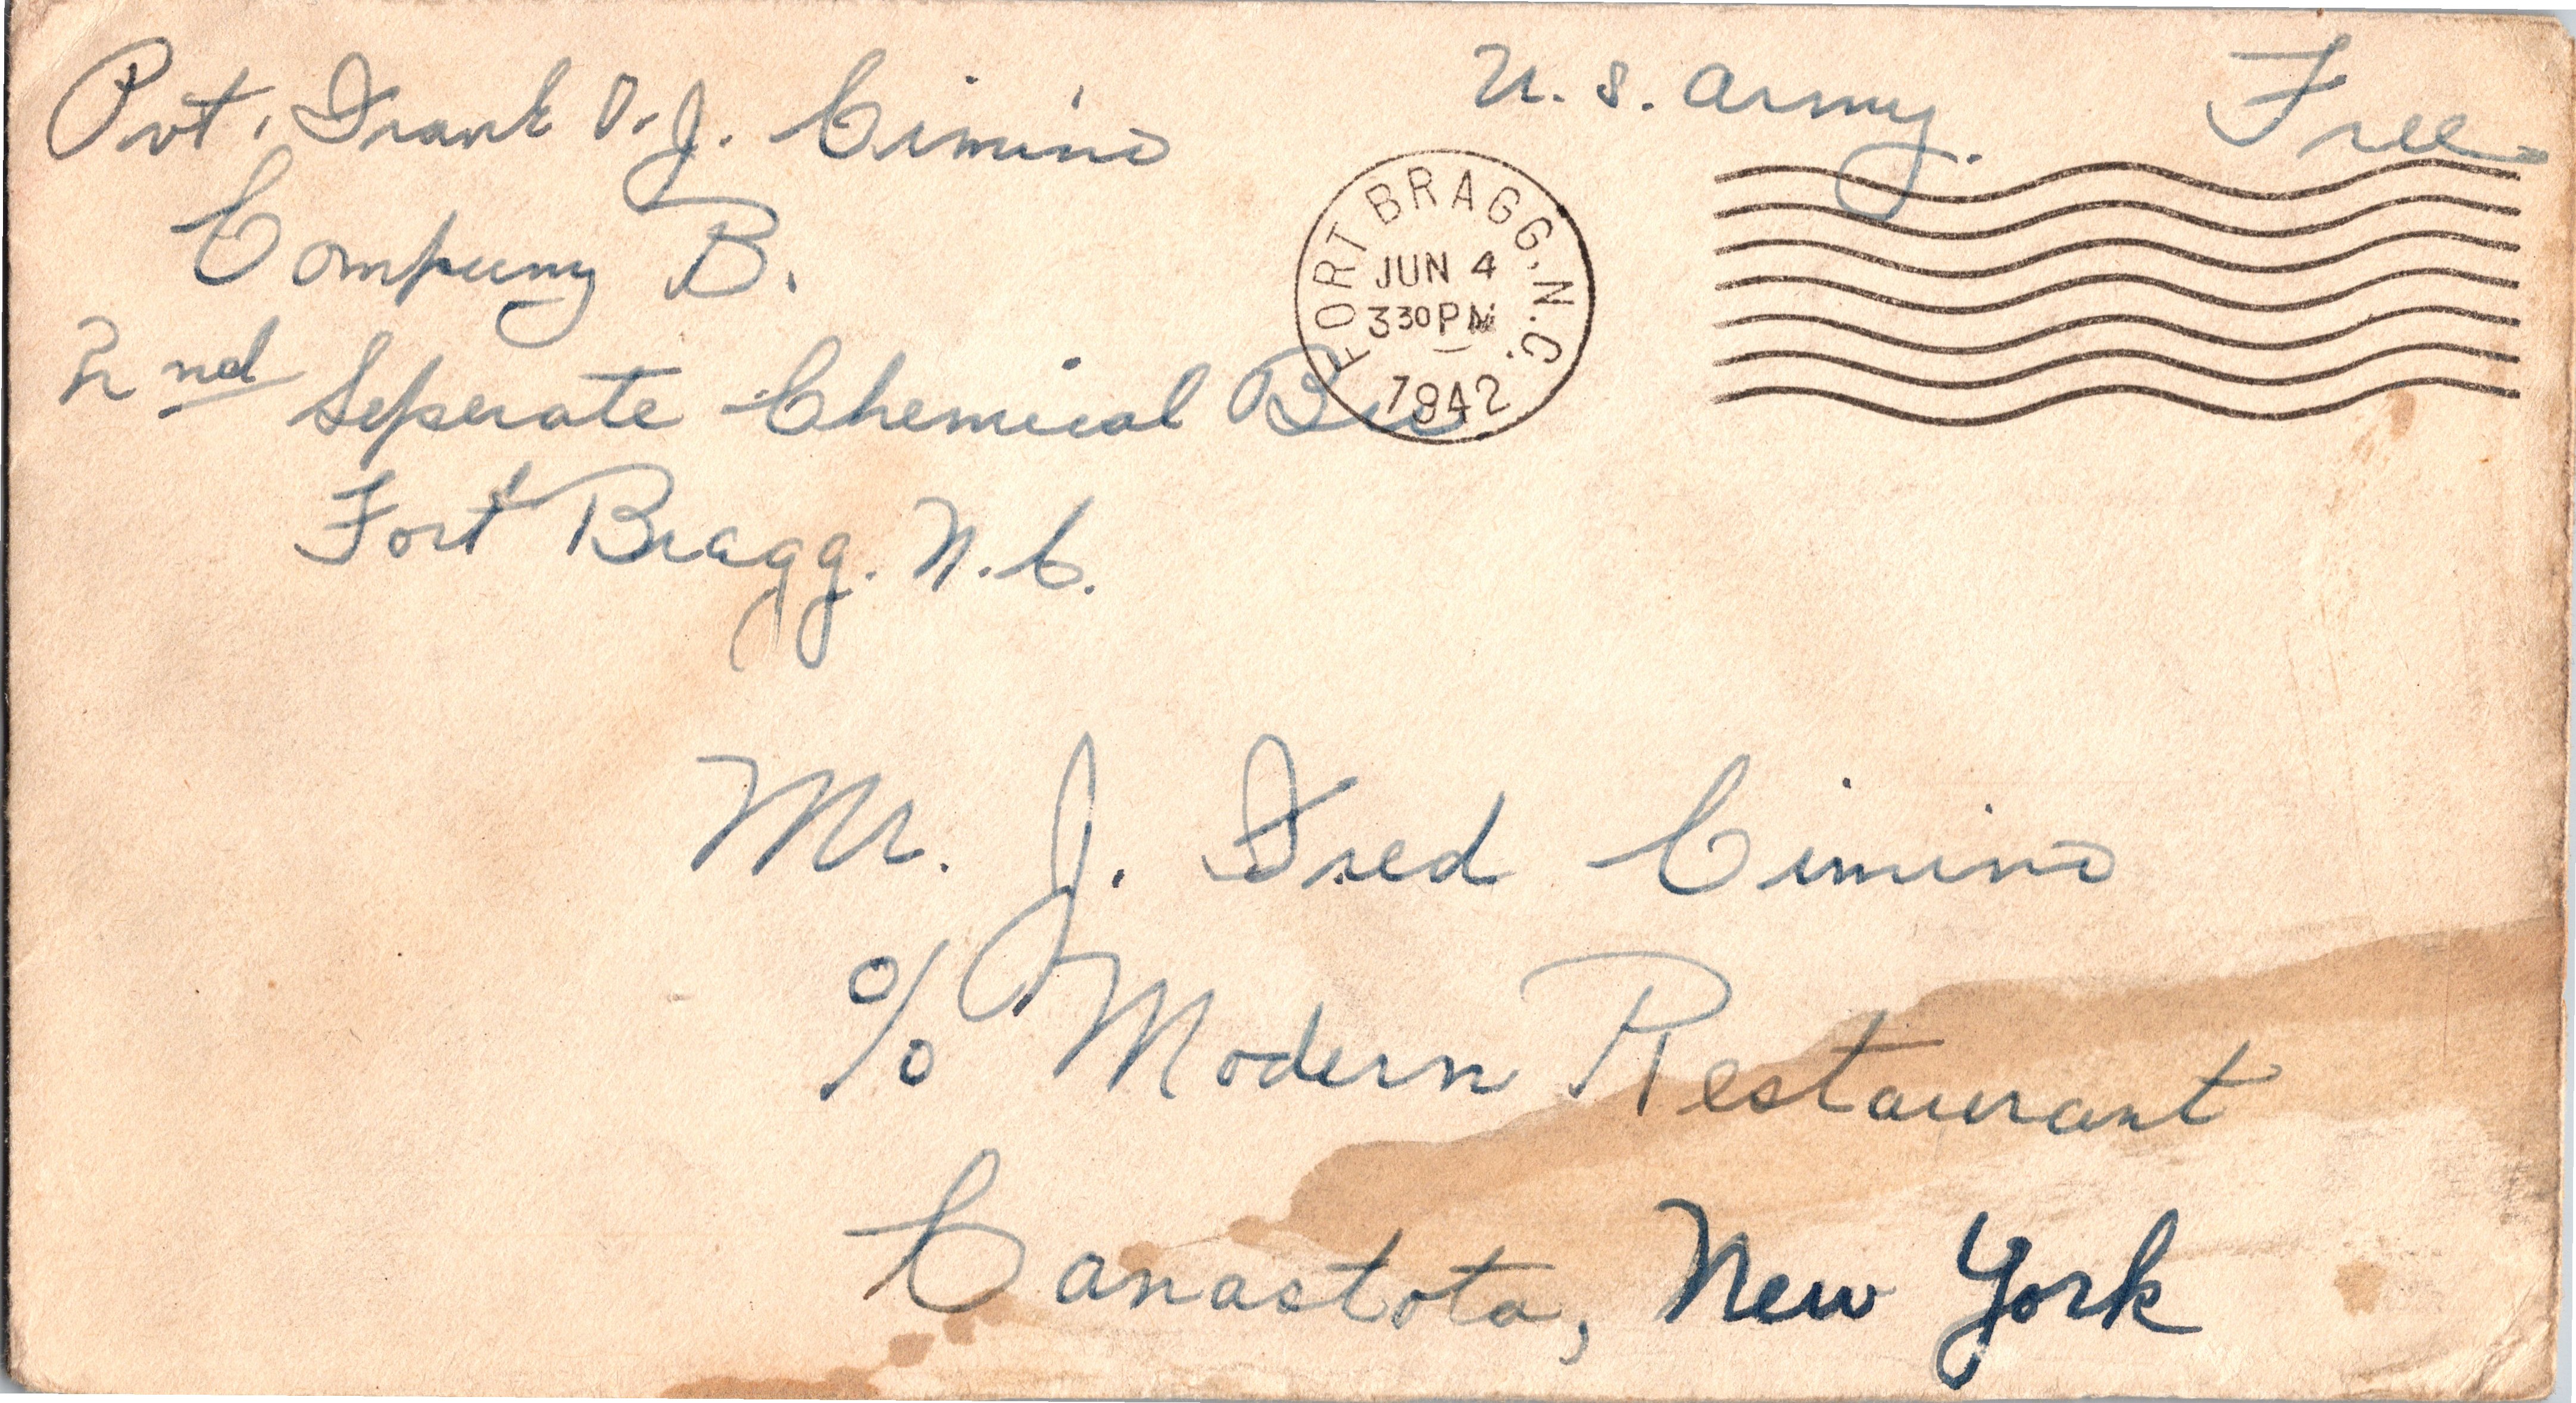 Pvt. Frank D. J. Cimino
Company B.
2nd Seperate Chemical Bn
Fort Bragg. N.C.
U.S. Army. Free
FORT BRAGG, N.C.
JUN 4
330 PM
1942
Mr. J. Fred Cimino
c/o Modern Restaurant
Canastota, New York